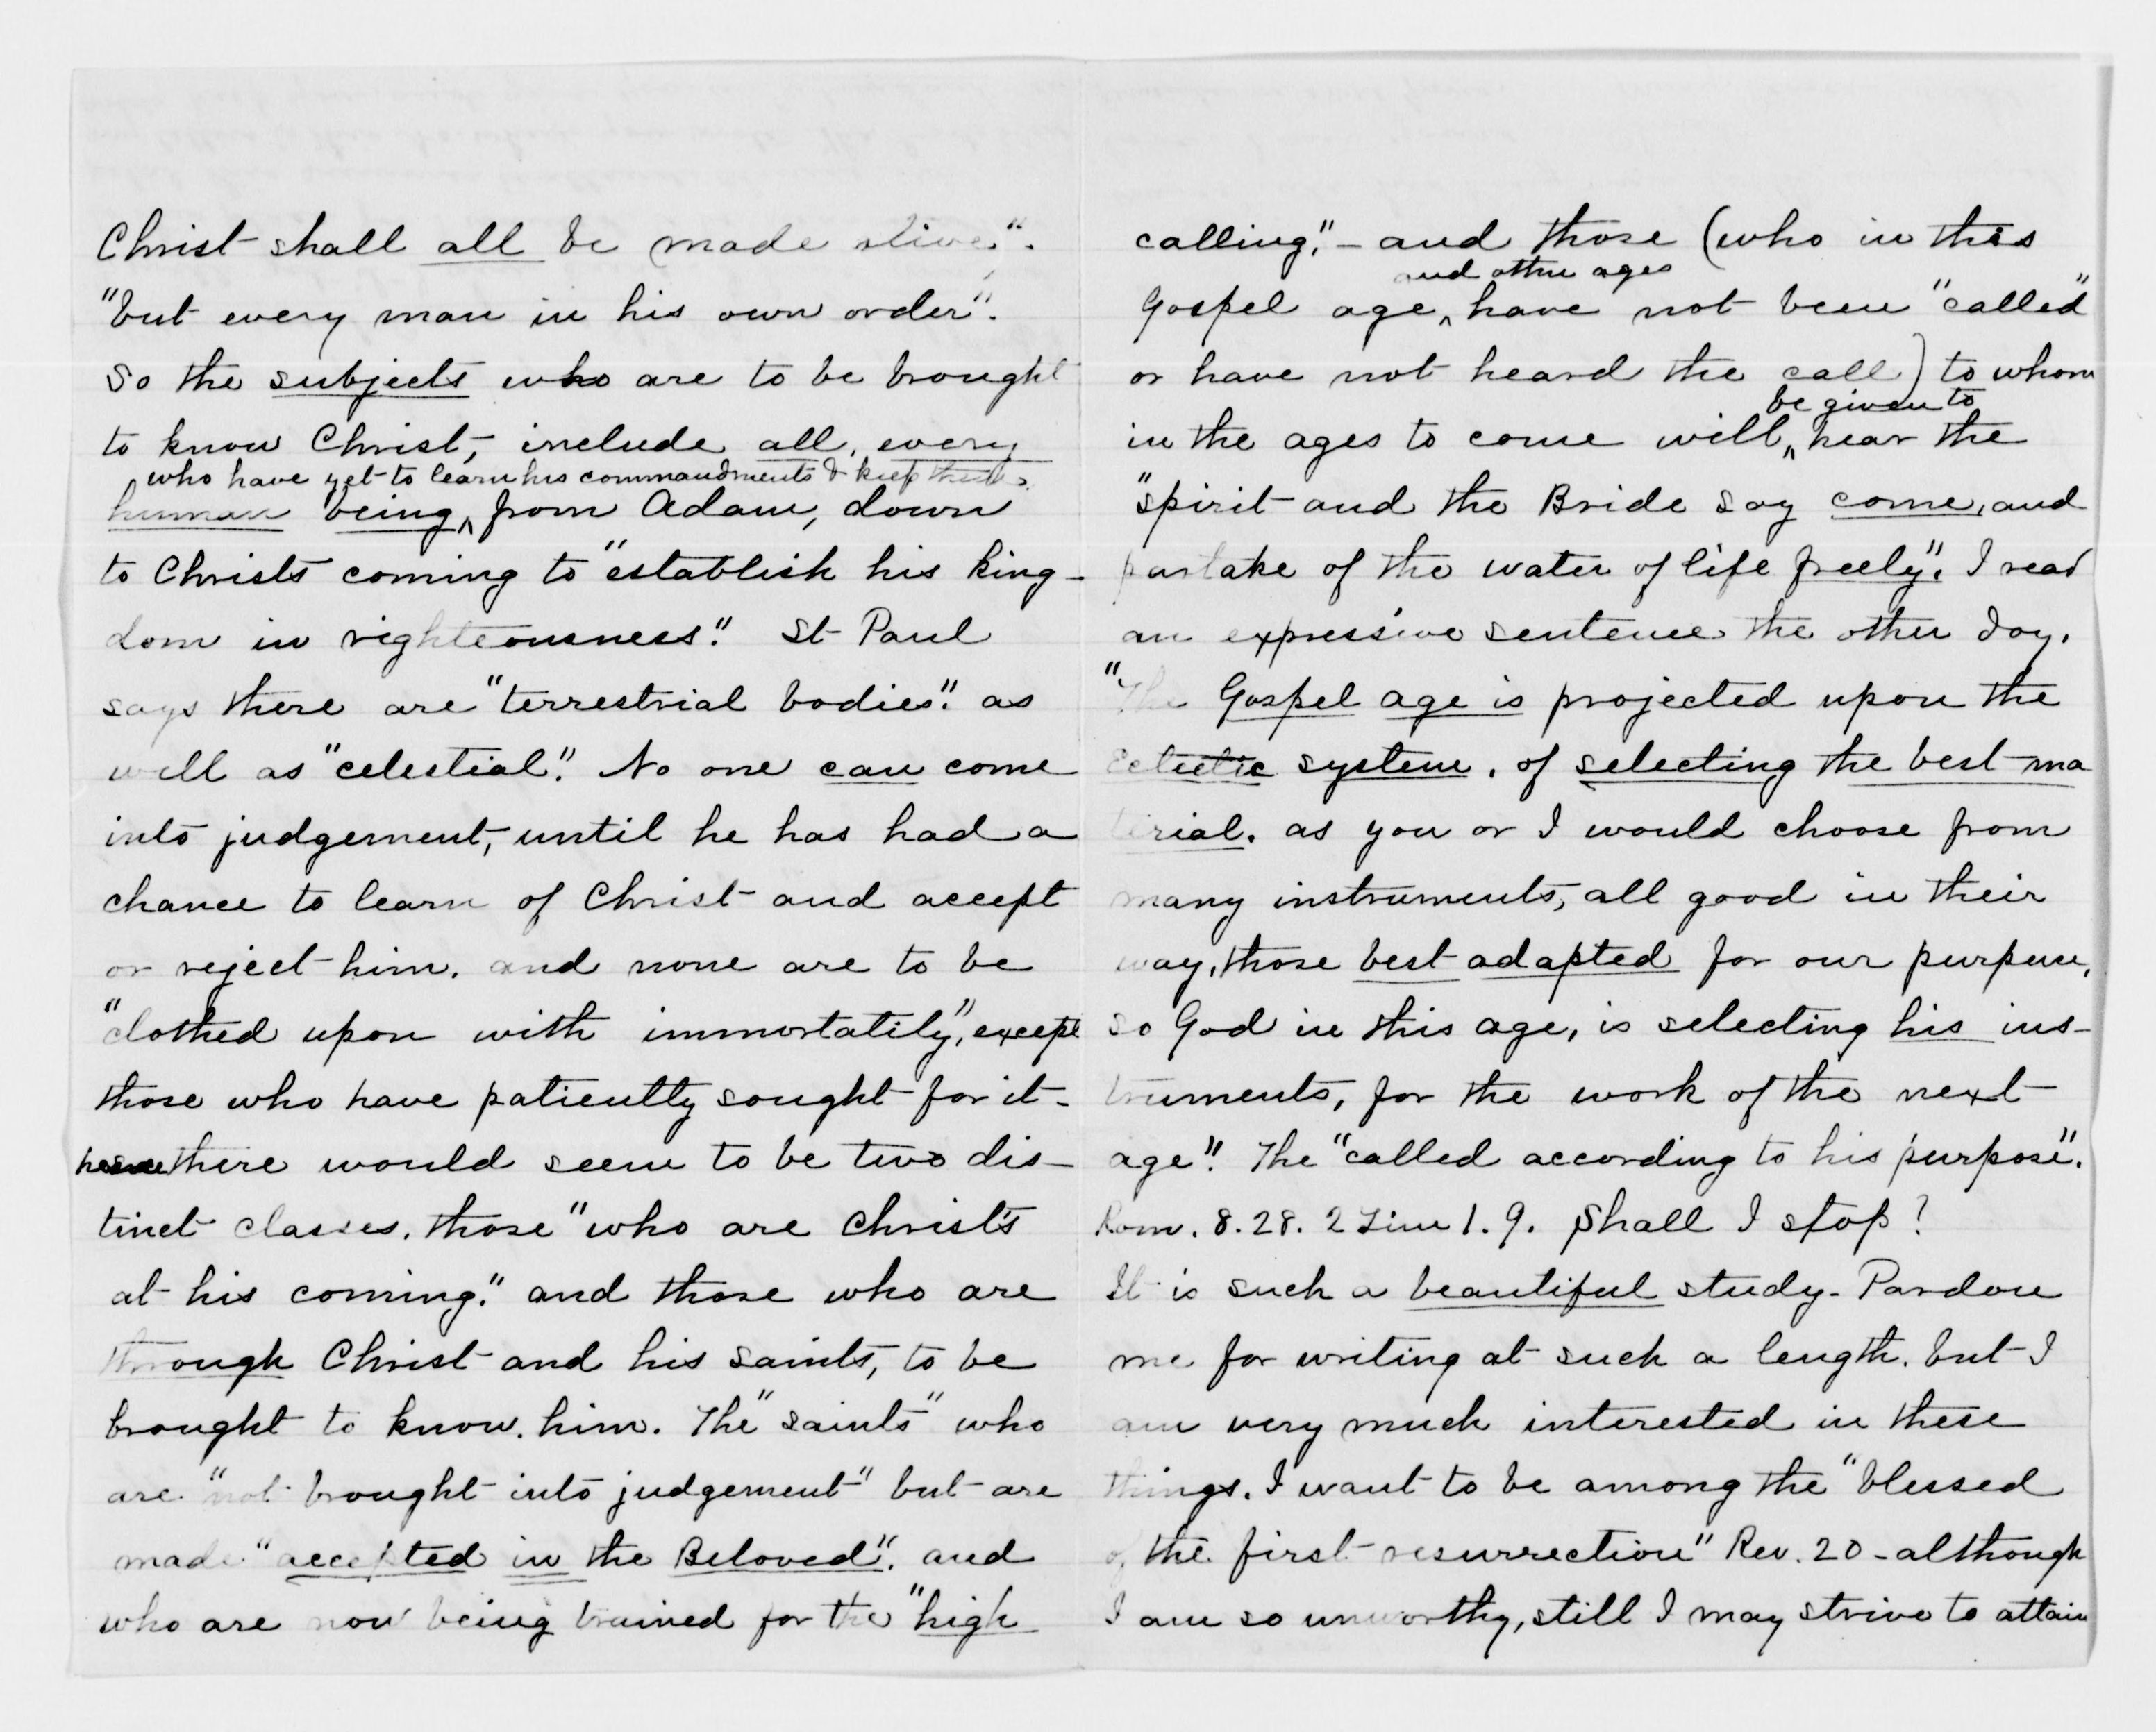 Christ shall all be made alive".
"but every man in his own order".
So the subjects who are to be brought
to know Christ, include all, every
who have yet to learn his commandments & keep them
human being, from Adam, down
to Christs coming to "establish his king-
dom in righteousness". St Paul
says there are "terrestrial bodies". as
well as "celestial". No one can come
into judgement, until he has had a
chance to learn of Christ and accept
or reject him. and none are to be
"clothed upon with immortatily", except
those who have patiently sought for it-
hence there would seem to be two dis-
tinct classes, those "who are Christ's
at his coming". and those who are
through Christ and his saints, to be
brought to know him. The "saints" who
are "not brought into judgement" but are
made "accepted in the Beloved". and
who are now being trained for the "high
calling". - and those (who in this
and other ages
Gospel age, have not been "called"
or have not heard the call) to whom
be given to
in the ages to come will hear the
"spirit and the Bride say come, and
partake of the water of life freely". I read
an expressive sentence the other day.
"The Gospel age is projected upon the
Eclectic system, of selecting the best ma
terial. as you or I would choose from
many instruments, all good in their
way, those best adapted for our purpose,
so God in this age, is selecting his ins-
truments, for the work of the next
age". The "called according to his purpose".
Rom. 8.28. 2 Tim 1.9. Shall I stop?
It is such a beautiful study - Pardon
me for writing at such a length. but I
am very much interested in these
things. I want to be among the "blessed
of the first resurrection" Rev. 20 - although
I am so unworthy, still I may strive to attain